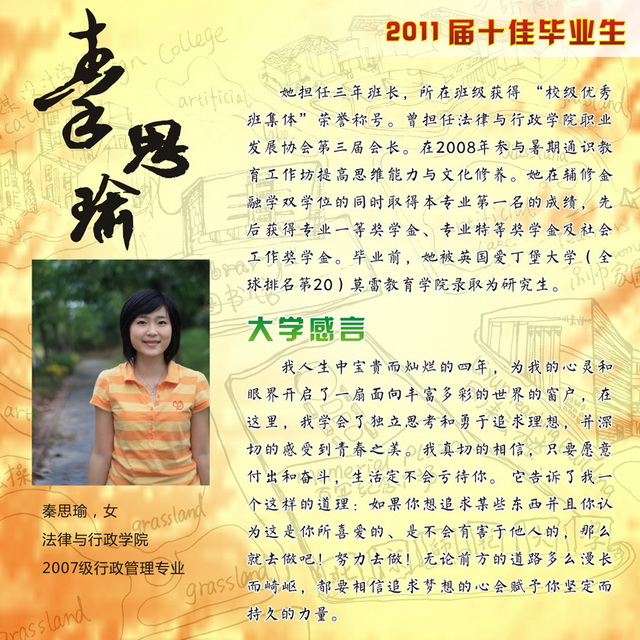 2011届十佳毕业生
秦思瑜
她担任三年班长，所在班级获得“校级优秀
班集体”荣誉称号。曾担任法律与行政学院职业
发展协会第三届会长。在2008年参与暑期通识教
育工作坊提高思维能力与文化修养。她在辅修金
融学双学位的同时取得本专业第一名的成绩，先
后获得专业一等奖学金、专业特等奖学金及社会
工作奖学金。毕业前，她被英国爱丁堡大学（全
球排名第20）莫雷教育学院录取为研究生。
大学感言
我人生中宝贵而灿烂的四年，为我的心灵和
眼界开启了一扇面向丰富多彩的世界的窗户，在
这里，我学会了独立思考和勇于追求理想，并深
切的感受到青春之美。我真切的相信，只要愿意
付出和奋斗，生活定不会亏待你。它告诉了我一
个这样的道理：如果你想追求某些东西并且你认
为这是你所喜爱的、是不会有害于他人的，那么
就去做吧！努力去做！无论前方的道路多么漫长
而崎岖，都要相信追求梦想的心会赋予你坚定而
持久的力量。
秦思瑜，女
法律与行政学院
2007级行政管理专业
College
artificial
lake
library
grassland
grassland
grassland
grassland